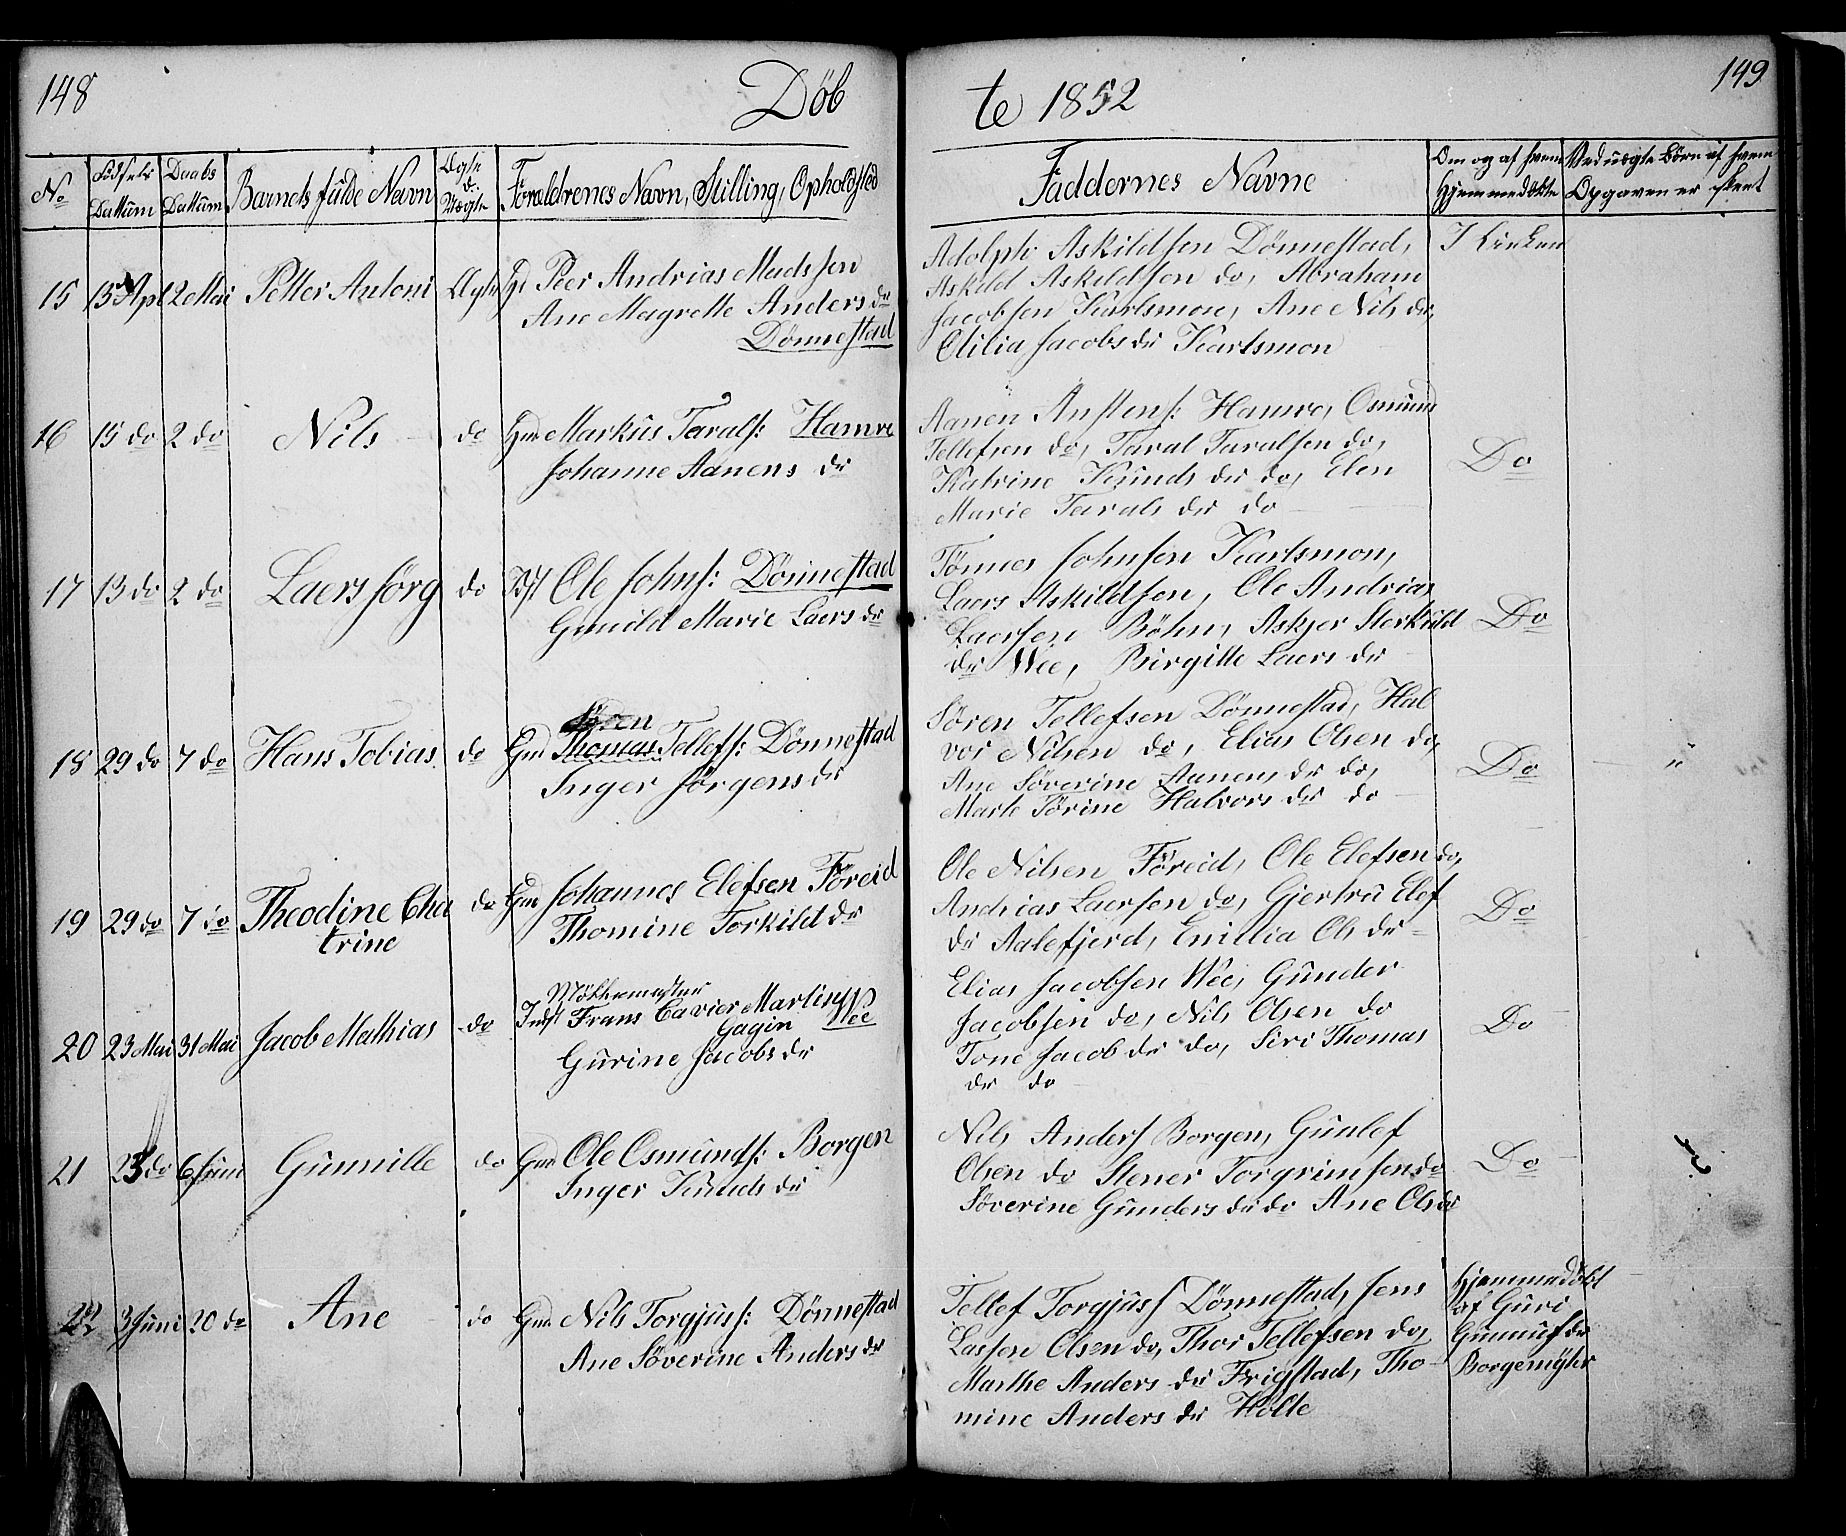 148
Döb
te 1852
149
No
Födsels Dattum
Daabs Dattum
Barnets fulde Navn
Ægte o. Uægte
Forældrenes Navn, Stilling, Opholdsted
Faddernes Navne
Om og af hvem Hjemmedöbte
Ved uægte Börn af hvem Opgaven er skeet
15 15 Apl 2 Mai Petter Antoni Ægte Peer Andrias Madssen
Ane Magrette Anders dr
Dönnestad
Adolph Askildsen Dönnestad,
Askild Askildsen do, Abraham
Jacobsen Kartsmon, Ane Nils dr,
Olilia Jacobs dr Kartsmon
I Kirken
16 15 do 2 do Nils do Gm Markus Tarals: Hamre
Johanne Aanens dr
Aanen Anstens: Hamre, Osmund
Tellefsen do, Taral Taralsen do,
Katrine Knuds dr do, Elen
Marie Tarals dr do
Do
17 13 do 2 do Laers Jörg do Ole Johns: Dönnestad
Gunild Marie Laers dr
Tönnes Johnsen Kartsmon,
Laers Askildsen, Ole Andrias
Laersen Böhn, Askjer Sterkild
dr Wee, Birgitte Laers dr
Do
18 29 do 7 do Hans Tobias do Gm Thomas Tellefs: Dönnestad
Sören
Inger Jörgens dr
Sören Tellefsen Dönnestad, Hal
vor Nilsen do, Elias Olsen do,
Ane Söverine Aanens dr do,
Marte Törine Halvors dr do
Do
19 29 do 7 do Theodine Cha
trine
do Gm Johannes Elefsen Föreid
Thomine Torkild dr
Ole Nilsen Föreid, Ole Elefsen do,
Andrias Laersen do, Gjertru Elef
dr Aalefjerd, Emilia Ols dr
Do
20 23 Mai 31 Mai Jacob Mathias do
Inst Frans Cavier Martin
Gagin Wee
Gurine Jacobs dr
Elias Jacobsen Wee, Gunder
Jacobsen do, Nils Olsen do
Tone Jacob dr do, Siri Thomas
dr do
Do
21 23 do 6 Juni Gunnille do Gm Ole Osmunds: Borgen
Inger Knuds dr
Nils Anders Borgen, Gunlef
Olsen do Stener Torgrimsen do
Söverine Gunders dr do Ane Ols dr
Do
22 3 Juni 20 do Ane do Gm Nils Torgjuss: Dönnestad
Ane Söverine Anders dr
Tellef Torgjuss Dönnestad, Jens
Lassen Olsen do, Thor Tellefsen do,
Marthe Anders dr Frigstad, Tho
mine Anders dr Holte
Hjemmedöbt
af Guri
Gunnuf dr
Borgemyhr